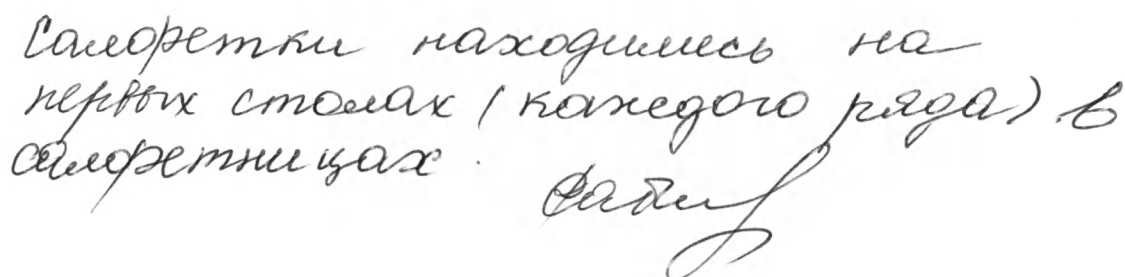 Салфетки находились на
первых столах (каждого ряда) в
салфетницах.